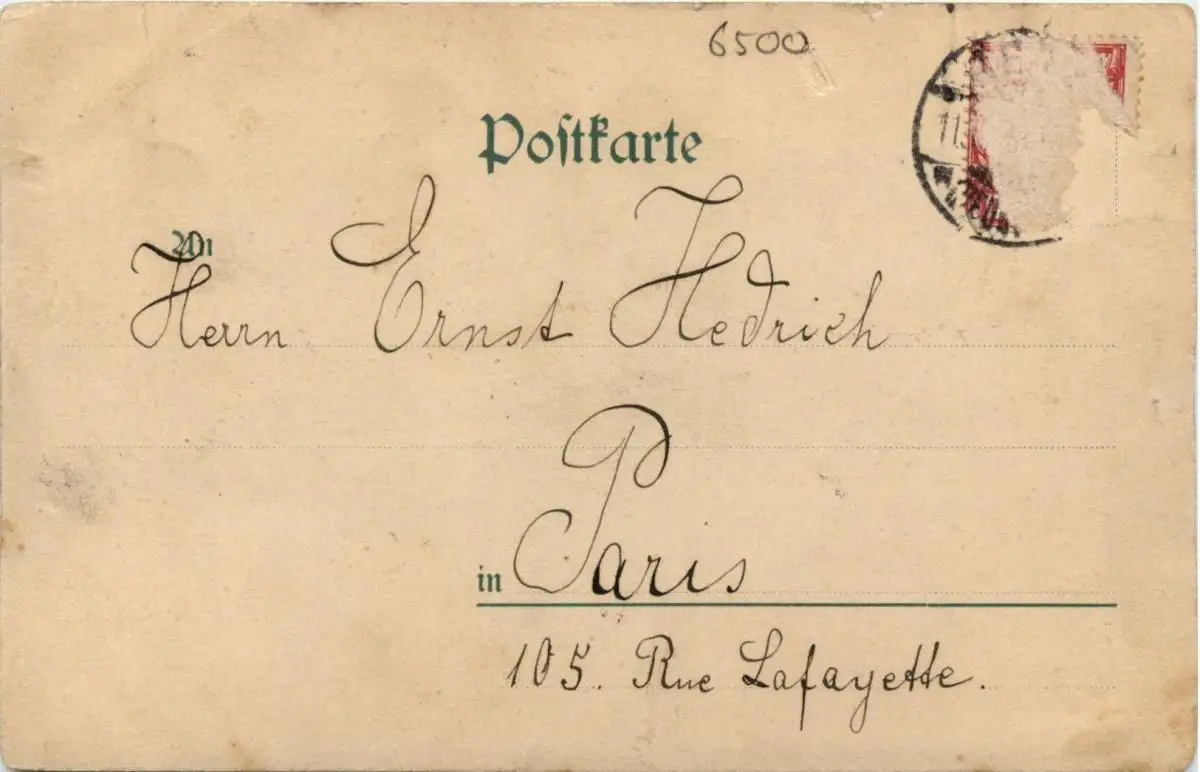 6500
Postkarte
An
Herrn Ernst Hedrich
in Paris
105. Rue Lafayette.